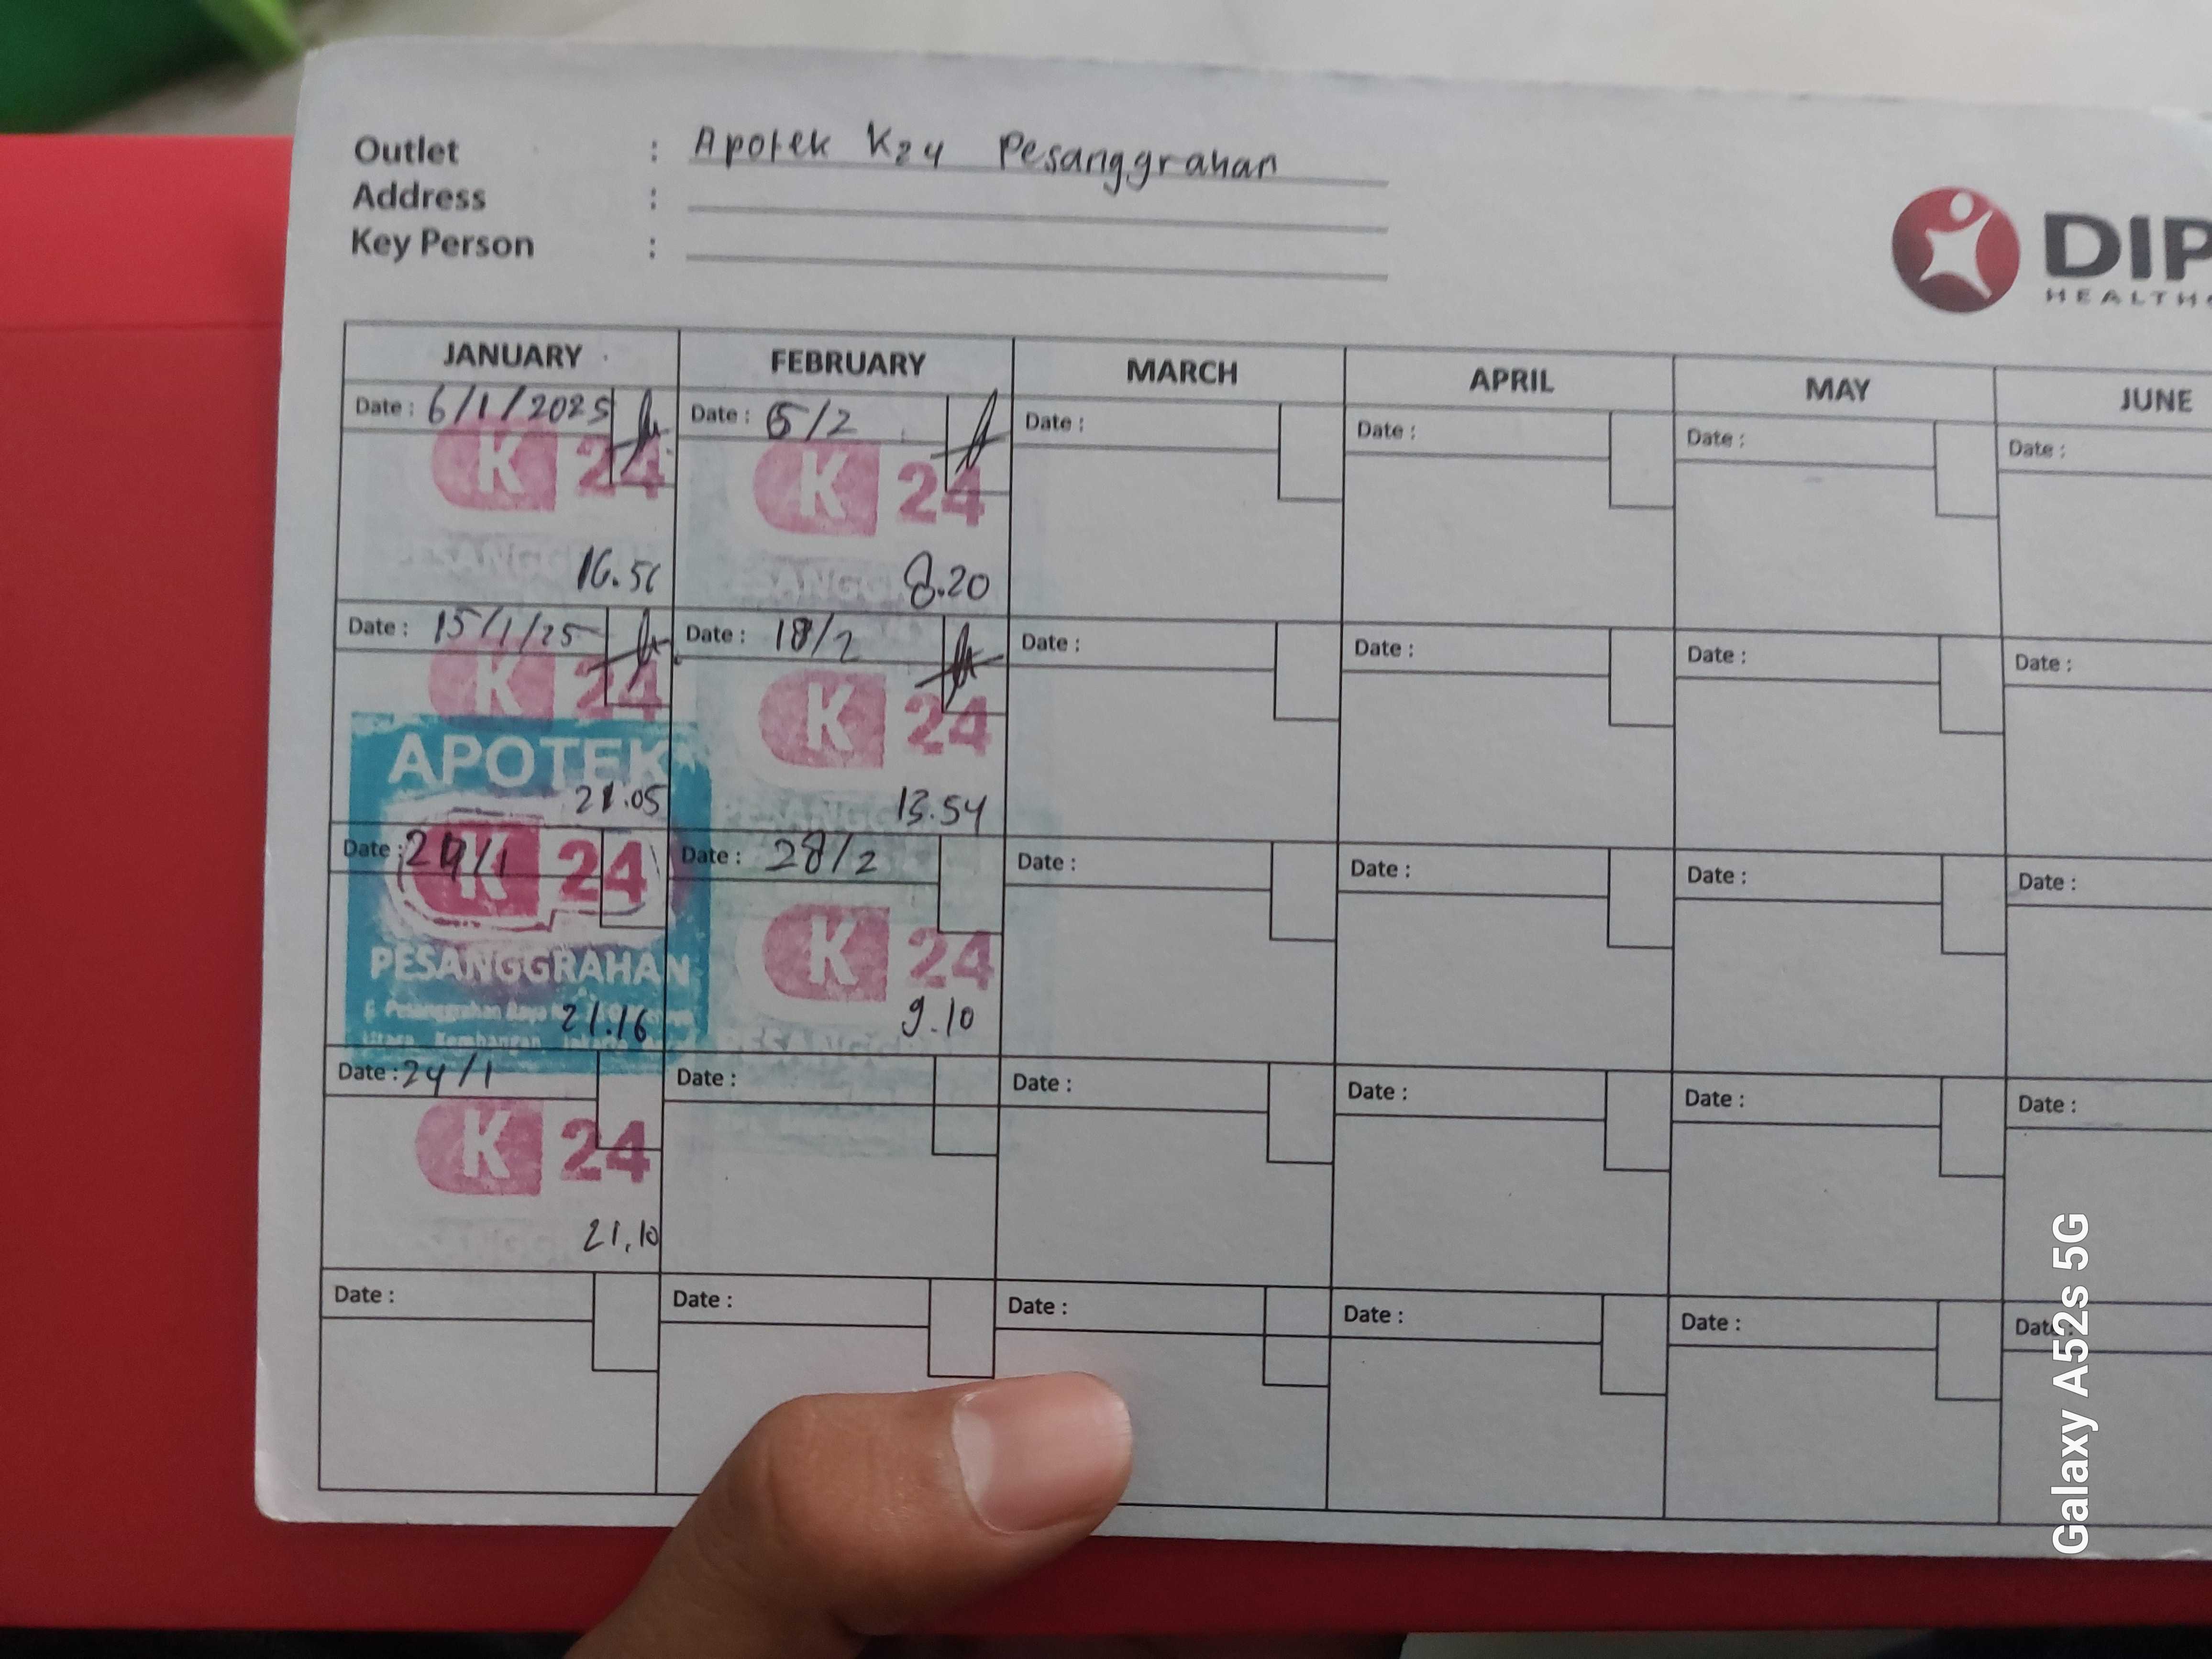 Outlet : Apotek K24 Pesanggrahan
Address :
Key Person :
DIP
HEALTH
JANUARY FEBRUARY MARCH APRIL MAY JUNE
Date : 6/1/2025 Date : 5/2 Date : Date : Date : Date :
K 24 K 24
PESANGGRAH SANGG
16.56 8.20
Date : 15/1/25 Date : 18/2 Date : Date : Date : Date :
K 24 K 24
APOTEK
21.05 13.54
PESANGG
Date : 24/1 Date : 28/2 Date : Date : Date : Date :
K 24 K 24
PESANGGRAHAN
Jl. Pesanggrahan Raya
21.16 9.10
Utara Kembangan Jakarta PESANGG
Date : 24/1 Date : Date : Date : Date : Date :
K 24
21.10
SANGG
Date : Date : Date : Date : Date : Date :
Galaxy A52s 5G